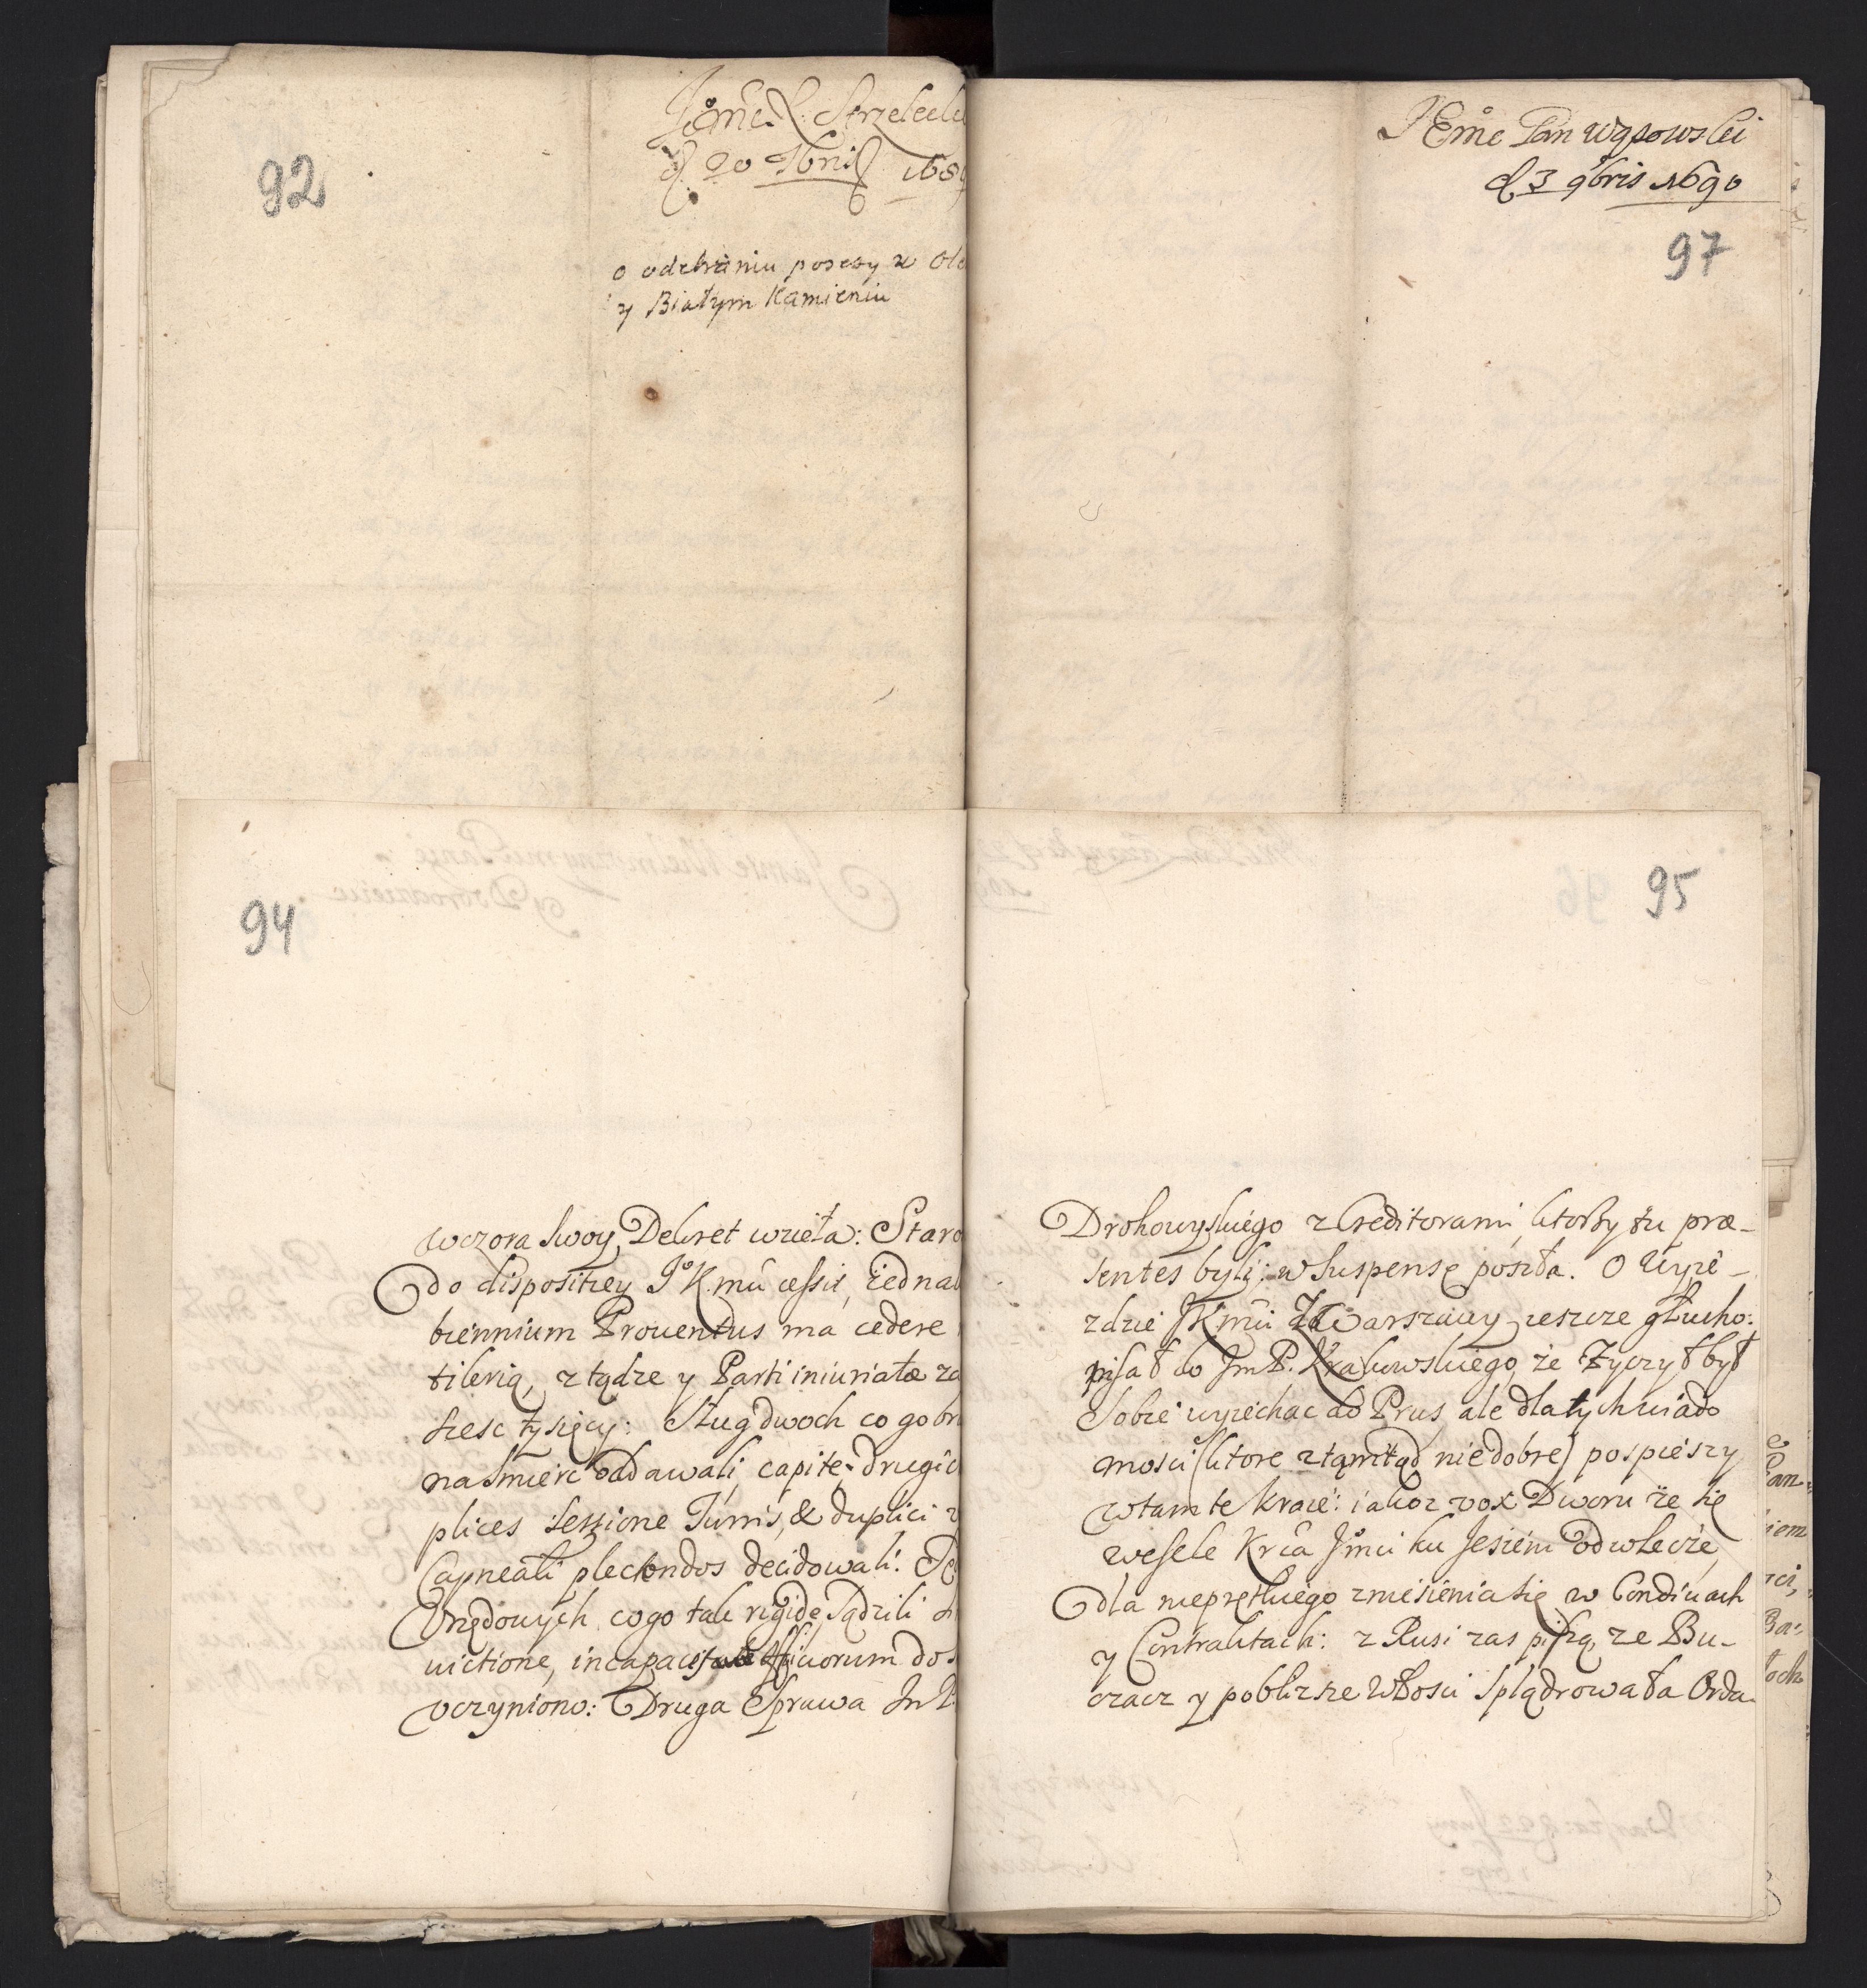 92
Jemć P. Strzelecki
d. 20 9bris 168
o odebraniu posesy w Ole
y Białym Kamieniu
JEmć Pan Wąsowski
d 3 9bris 1690
97
94
wczora swoy Dekret wzieła: Staro
do dispositiey JKmći cessit, iednak
biennium Prouentus ma cedere
tilerią, ztądze y Parti iniuriatæ za
szesc tysięcy: Sług dwoch co go
na smierc oddawali, capite, drugic
plices sessione Turris, & duplici
Capneali plectendos decidowali:
Vrzędowych co go tak rigide sądzili
uictione, incapacitate officiorum do
vczyniono: Druga Sprawa Im P.
95
Drohowyskiego z Creditorami, ktorzy tu præ-
sentes byli: w suspensę poszła. O Uyie-
zdzie JKmći z Warszawy ieszcze głucho:
pisał do JmP. Krakowskiego, że życzył był
sobie wyiechac do Prus, ale dla tych wiado
mosci (ktore ztamtąd nie dobre) pospieszy
w tamte kraie: iakoz vox Dworu że się
wesele Krca Jmći ku Jesieni odwlecze,
dla nieprętkiego zniesienia się w Condiciach
y Contraktach: z Rusi zas piszą, ze Bu-
czacz y poblizsze Włosci splądrowała Orda